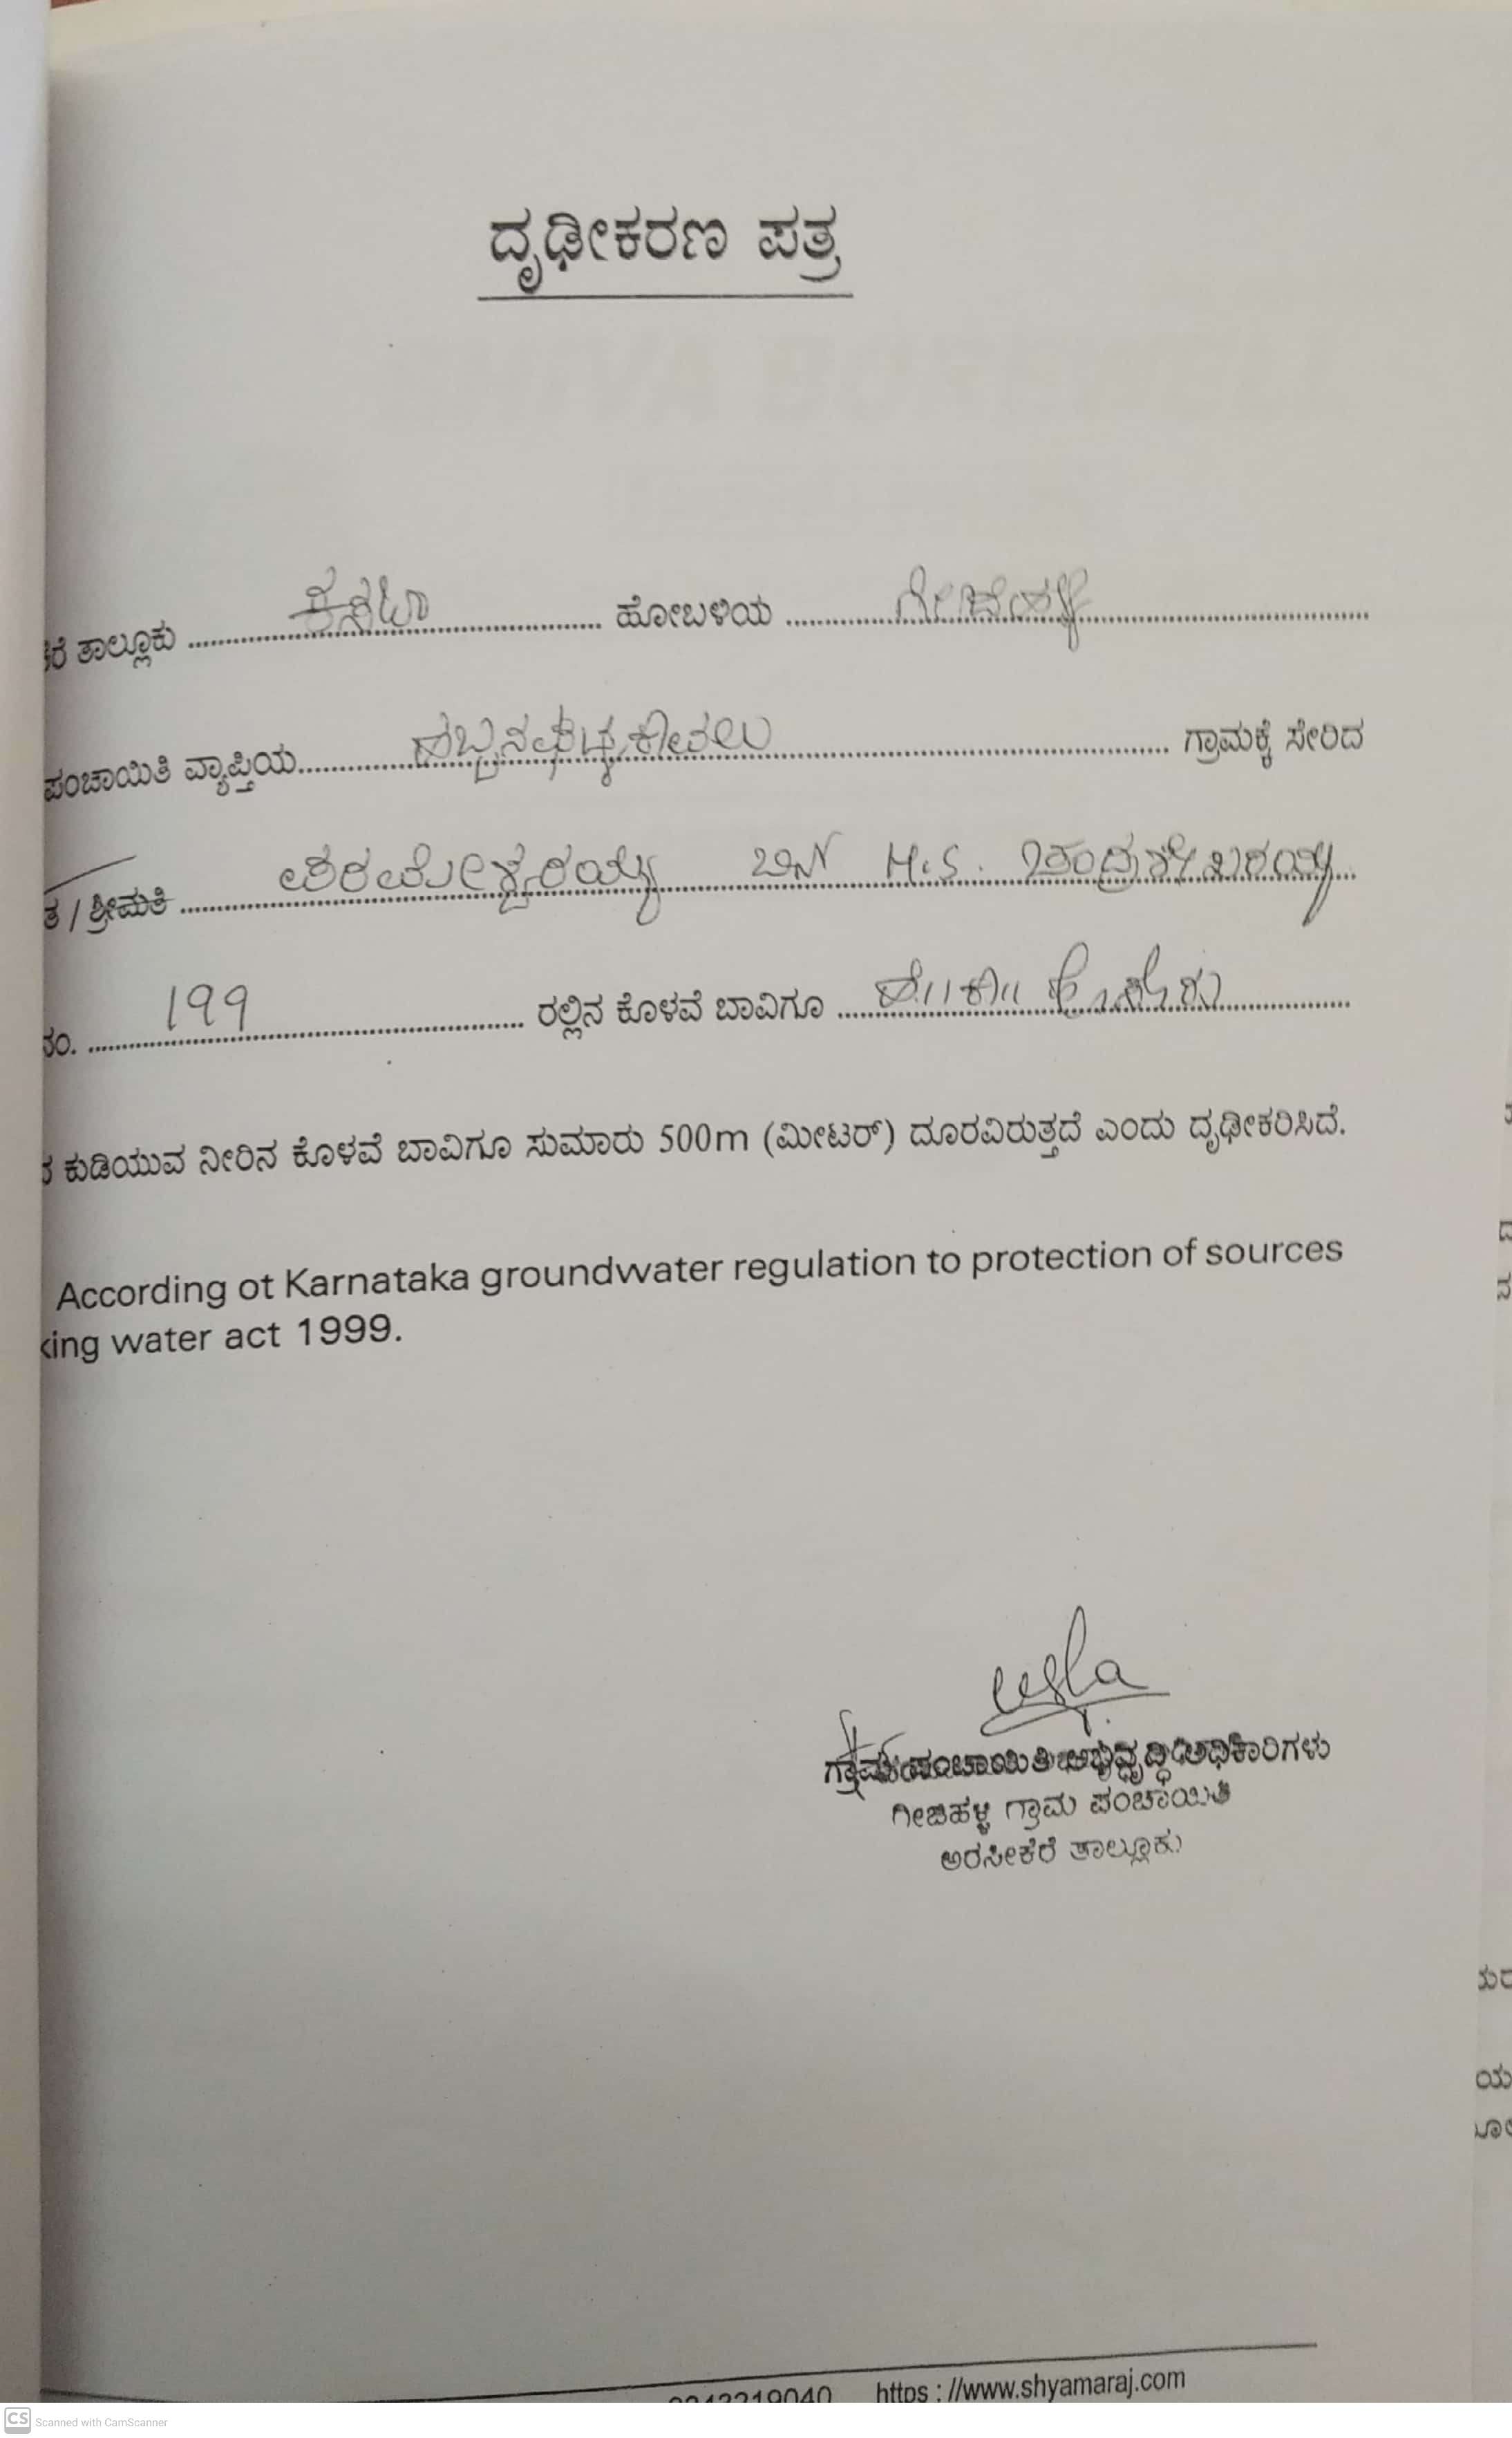 ದೃಢೀಕರಣ ಪತ್ರ
ರೆ ತಾಲ್ಲೂಕು ಕಸಬಾ ಹೋಬಳಿಯ
ಪಂಚಾಯಿತಿ ವ್ಯಾಪ್ತಿಯ ಗ್ರಾಮಕ್ಕೆ ಸೇರಿದ
ತ / ಶ್ರೀಮತಿ ಪರಮೇಶ್ವರಯ್ಯ ಬಿನ್ H.S. ಚಂದ್ರಶೇಖರಯ್ಯ
ನಂ. 199 ರಲ್ಲಿನ ಕೊಳವೆ ಬಾವಿಗೂ
ಕುಡಿಯುವ ನೀರಿನ ಕೊಳವೆ ಬಾವಿಗೂ ಸುಮಾರು 500m (ಮೀಟರ್) ದೂರವಿರುತ್ತದೆ ಎಂದು ದೃಢೀಕರಿಸಿದೆ.
According ot Karnataka groundwater regulation to protection of sources
king water act 1999.
ಗ್ರಾಮ ಪಂಚಾಯಿತಿ ಅಭಿವೃದ್ಧಿ ಅಧಿಕಾರಿಗಳು
ಗೀಜಿಹಳ್ಳಿ ಗ್ರಾಮ ಪಂಚಾಯಿತಿ
ಅರಸೀಕೆರೆ ತಾಲ್ಲೂಕು
https : //www.shyamaraj.com
CS Scanned with CamScanner